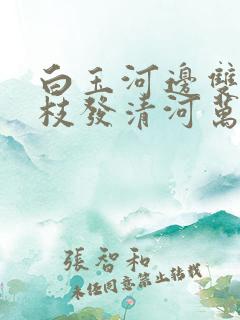 白玉河邊雙
枝發清河萬
張智和
未经同意禁止转载